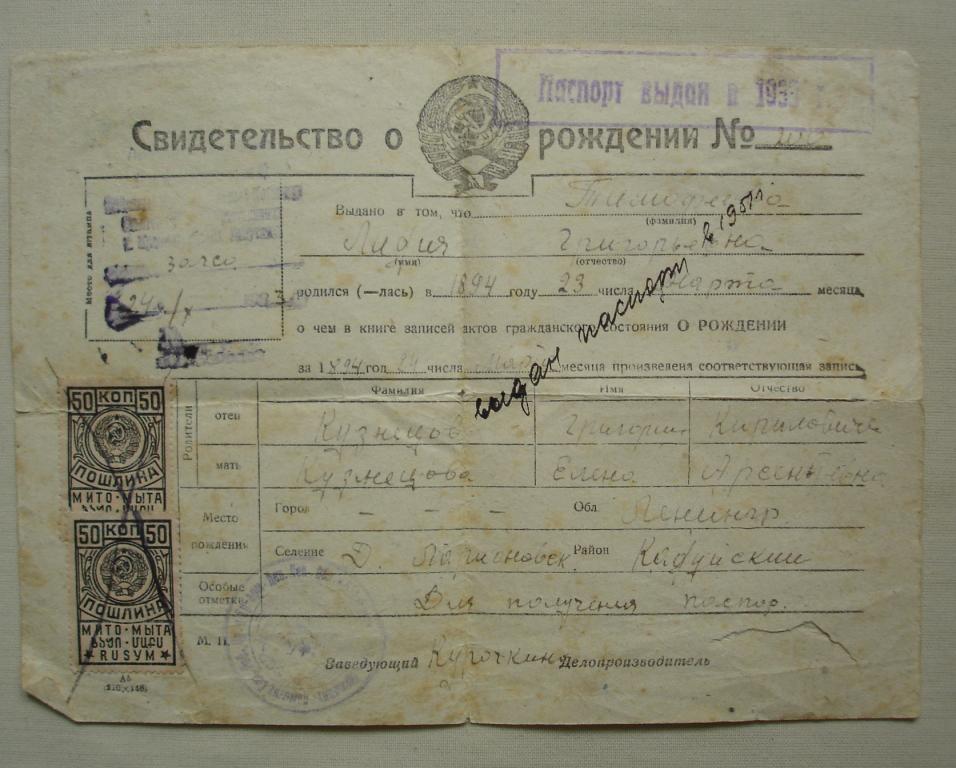 Паспорт выдан в 193
Свидетельство о рождении №
Место для штампа
загса
24 / X 193
Выдано в том, что Тимофеева
(фамилия)
Лидия Григорьевна
(имя) (отчество)
родился (—лась) в 1894 году 23 числа марта месяца
о чем в книге записей актов гражданского состояния О РОЖДЕНИИ
за 1894 год 24 числа месяца произведена соответствующая запись
выдан паспорт в 1951 г
Фамилия Имя Отчество
Родители
отец Кузнецов Григорий Кирилович
мать Кузнецова Елена Арсентьевна
Место рождения
Город — — — Обл. Ленингр.
Селение Д. Район
Особые отметки Для получения паспор.
М. П.
Заведующий Делопроизводитель
50 КОП 50
ПОШЛИНА
МИТО·МЫТА
50 КОП 50
ПОШЛИНА
МИТО·МЫТА
ბაჟი·ՄԱՔՍ
RUSYM
А5